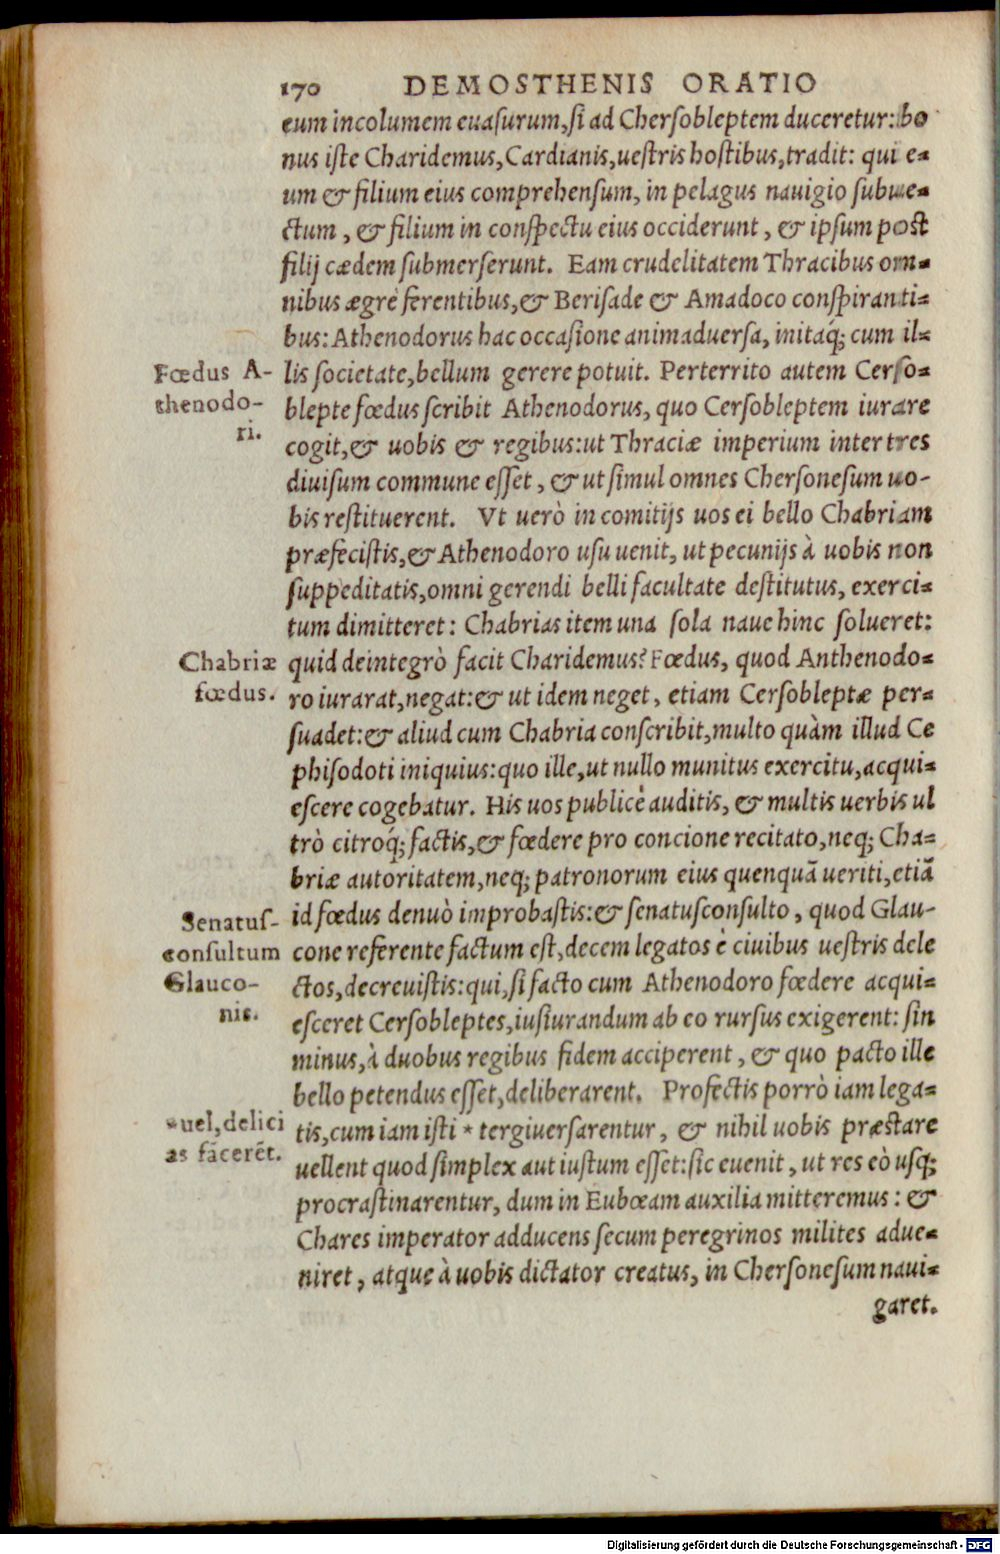 170 DEMOSTHENIS ORATIO
eum incolumem euaſurum, ſi ad Cherſobleptem duceretur: bo
nus iſte Charidemus, Cardianis, ueſtris hoſtibus, tradit: qui e-
um & filium eius comprehenſum, in pelagus nauigio ſubue-
ctum, & filium in conſpectu eius occiderunt, & ipſum poſt
filij cædem ſubmerſerunt. Eam crudelitatem Thracibus om-
nibus ægrè ferentibus, & Beriſade & Amadoco conſpiranti-
bus: Athenodorus hac occaſione animaduerſa, initaq́; cum il-
Fœdus A-
thenodo-
ri.
lis ſocietate, bellum gerere potuit. Perterrito autem Cerſo-
blepte fœdus ſcribit Athenodorus, quo Cerſobleptem iurare
cogit, & uobis & regibus: ut Thraciæ imperium inter tres
diuiſum commune eſſet, & ut ſimul omnes Cherſoneſum uo-
bis reſtituerent. Vt uerò in comitijs uos ei bello Chabriam
præfeciſtis, & Athenodoro uſu uenit, ut pecunijs à uobis non
ſuppeditatis, omni gerendi belli facultate deſtitutus, exerci-
tum dimitteret: Chabrias item una ſola naue hinc ſolueret:
Chabriæ
fœdus.
quid deintegrò facit Charidemus? Fœdus, quod Anthenodo-
ro iurarat, negat: & ut idem neget, etiam Cerſobleptæ per-
ſuadet: & aliud cum Chabria conſcribit, multo quàm illud Ce
phiſodoti iniquius: quo ille, ut nullo munitus exercitu, acqui-
eſcere cogebatur. His uos publicè auditis, & multis uerbis ul
trò citroq́; factis, & fœdere pro concione recitato, neq; Cha-
briæ autoritatem, neq; patronorum eius quenquã ueriti, etiã
Senatuſ-
conſultum
Glauco-
nis.
id fœdus denuò improbaſtis: & ſenatusconſulto, quod Glau-
cone referente factum eſt, decem legatos è ciuibus ueſtris dele
ctos, decreuiſtis: qui, ſi facto cum Athenodoro fœdere acqui-
eſceret Cerſobleptes, iuſiurandum ab eo rurſus exigerent: ſin
minus, à duobus regibus fidem acciperent, & quo pacto ille
bello petendus eſſet, deliberarent. Profectis porrò iam lega-
*uel, delici
as facerẽt.
tis, cum iam iſti * tergiuerſarentur, & nihil uobis præſtare
uellent quod ſimplex aut iuſtum eſſet: ſic euenit, ut res eò uſq;
procraſtinarentur, dum in Eubœam auxilia mitteremus: &
Chares imperator adducens ſecum peregrinos milites adue-
niret, atque à uobis dictator creatus, in Cherſoneſum naui-
garet.
Digitalisierung gefördert durch die Deutsche Forschungsgemeinschaft - DFG